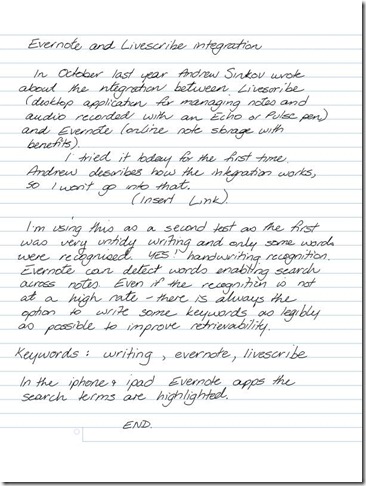 Evernote and Livescribe integration
In October last year Andrew Sinkov wrote
about the integration between Livescribe
(desktop application for managing notes and
audio recorded with an Echo or Pulse pen)
and Evernote (online note storage with
benefits).
I tried it today for the first time.
Andrew describes how the integration works,
so I won't go into that.
(Insert Link).
I'm using this as a second test as the first
was very untidy writing and only some words
were recognised. YES! handwriting recognition.
Evernote can detect words enabling search
across notes. Even if the recognition is not
at a high rate - there is always the
option to write some keywords as legibly
as possible to improve retrievability.
Keywords: writing, evernote, livescribe
In the iphone & ipad Evernote apps the
search terms are highlighted.
END.